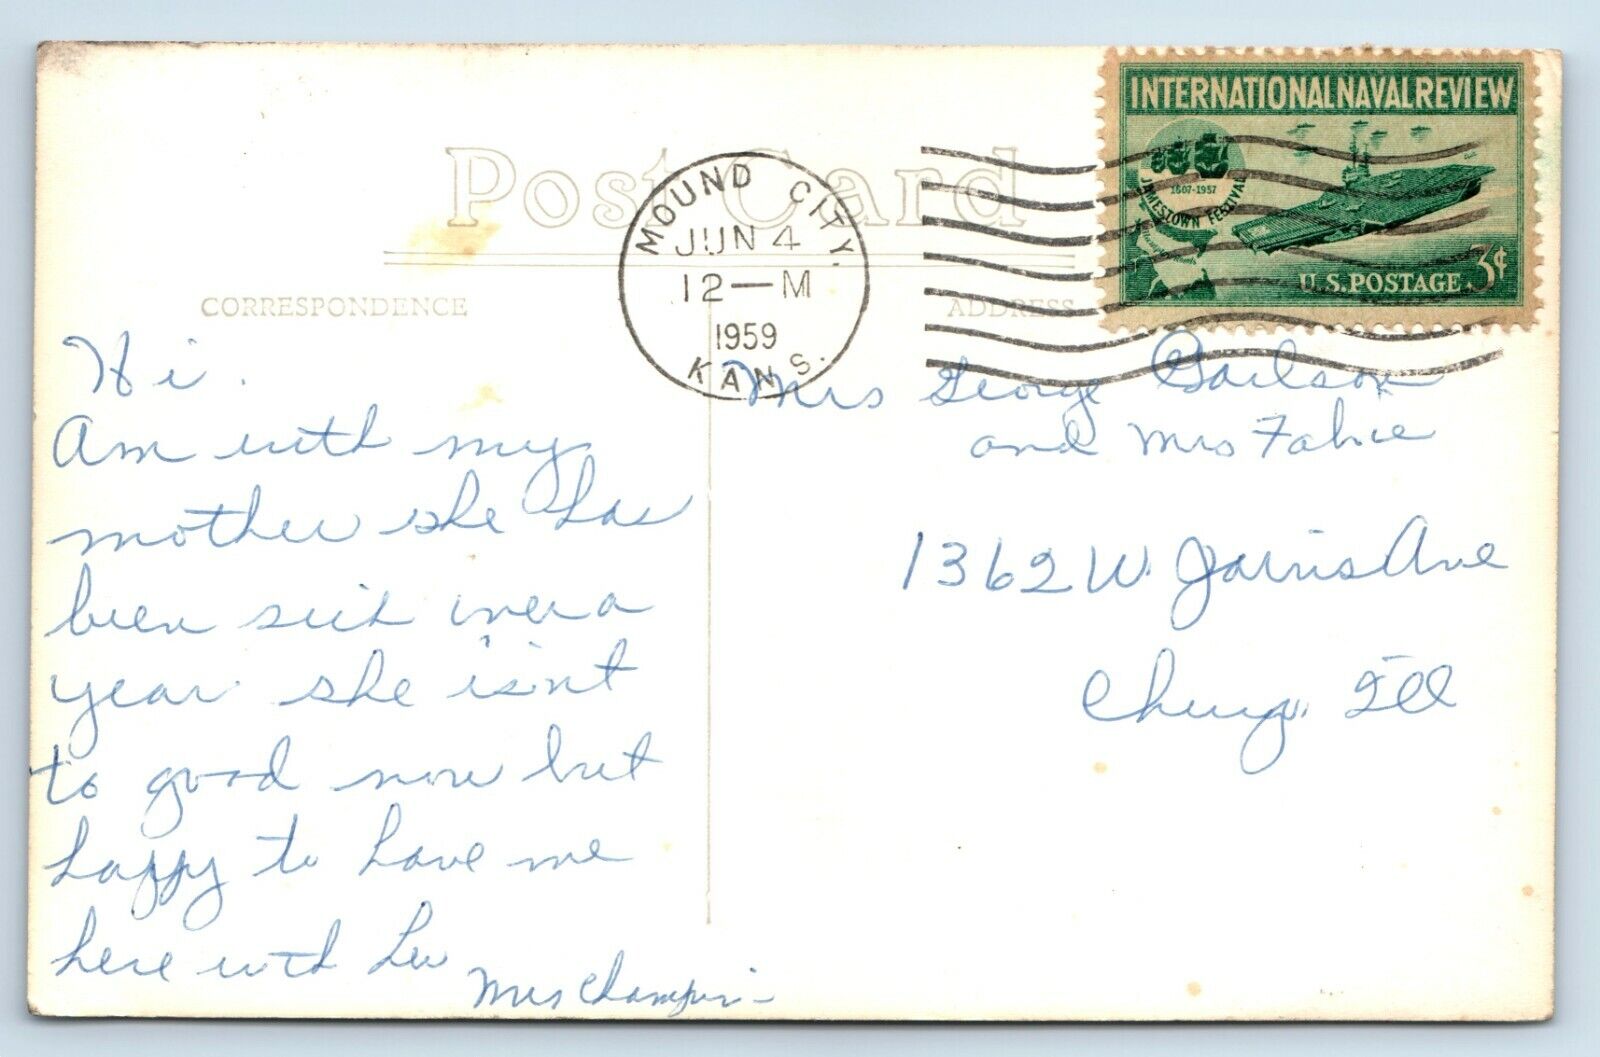 Post Card
CORRESPONDENCE
ADDRESS
MOUND CITY,
JUN 4
12—M
1959
KANS.
INTERNATIONAL NAVAL REVIEW
1607-1957
JAMESTOWN FESTIVAL
U.S. POSTAGE 3¢
Hi.
Am with my
mother she has
been sick over a
year she isn't
to good now but
happy to have me
here with her
Mrs
Mrs George
and Mrs
1362 W. Jarvis Ave
Ill